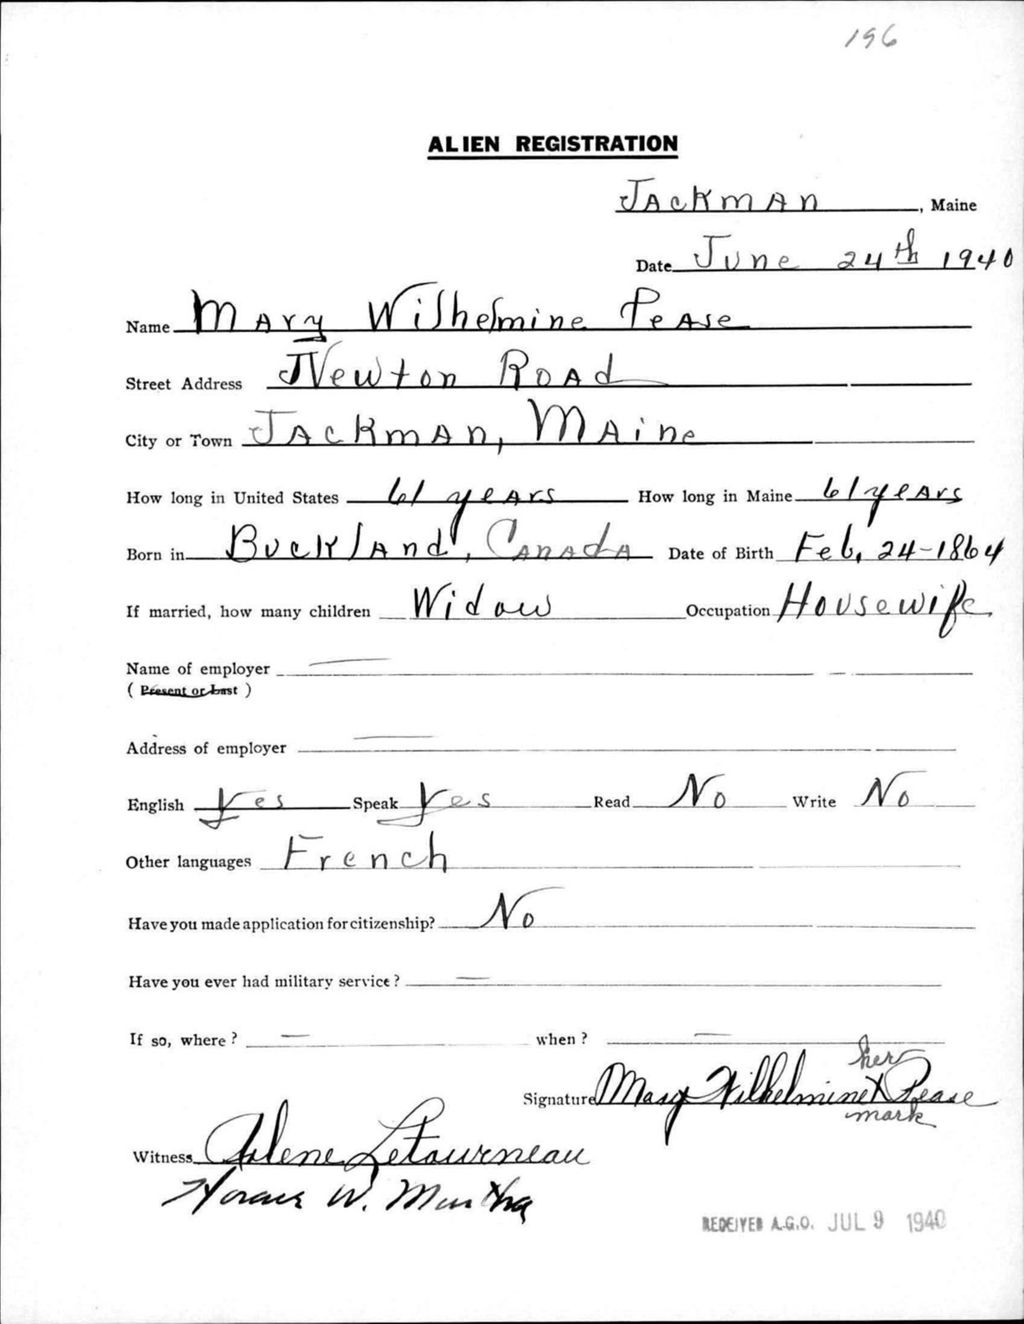 196
ALIEN REGISTRATION
Jackman, Maine
Date June 24th 1940
Name Mary Wilhelmine Pease
Street Address Newton Road
City or Town Jackman, Maine
How long in United States 61 years How long in Maine 61 years
Born in Buckland, Canada Date of Birth Feb. 24-1864
If married, how many children Widow Occupation Housewife
Name of employer
( Present or last )
Address of employer
English Yes Speak Yes Read No Write No
Other languages French
Have you made application for citizenship? No
Have you ever had military service? —
If so, where? — when? —
her
Signature Mary Wilhelmine X Pease
mark
Witness Arlene Letourneau
Horace W.
RECEIVED A.G.O. JUL 9 1940